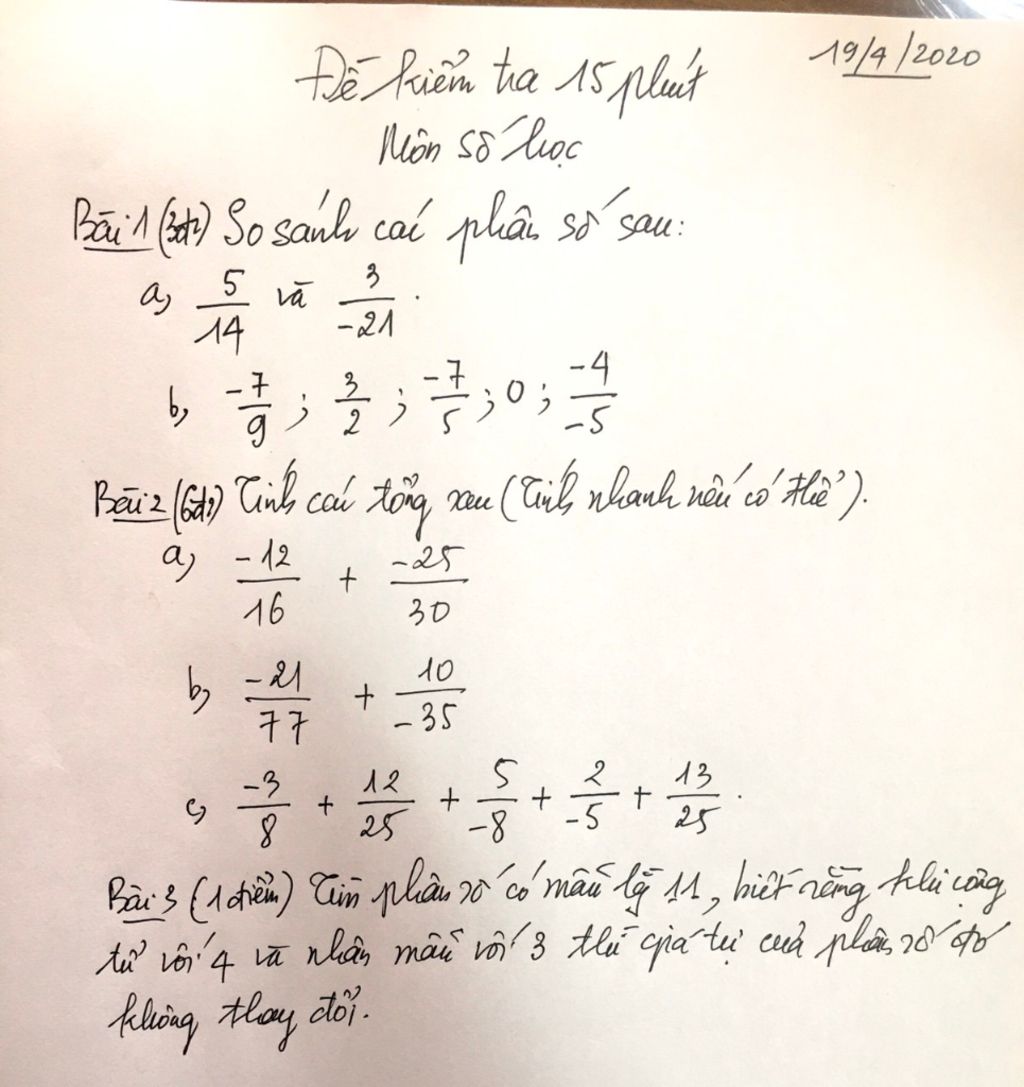 19/4/2020
Đề kiểm tra 15 phút
Môn số học
Bài 1 (3đ) So sánh các phân số sau:
a, 5/14 và 3/-21.
b, -7/9 ; 3/2 ; -7/5 ; 0 ; -4/-5
Bài 2 (6đ) Tính các tổng sau (Tính nhanh nếu có thể).
a, -12/16 + -25/30
b, -21/77 + 10/-35
c, -3/8 + 12/25 + 5/-8 + 2/-5 + 13/25.
Bài 3 (1 điểm) Tìm phân số có mẫu là 11, biết rằng khi cộng
tử với 4 và nhân mẫu với 3 thì giá trị của phân số đó
không thay đổi.